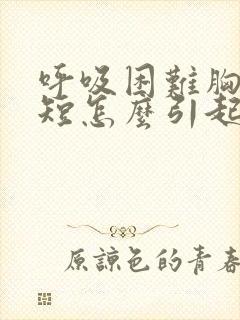 呼吸困難胸
短怎麼引起
原諒色的青春